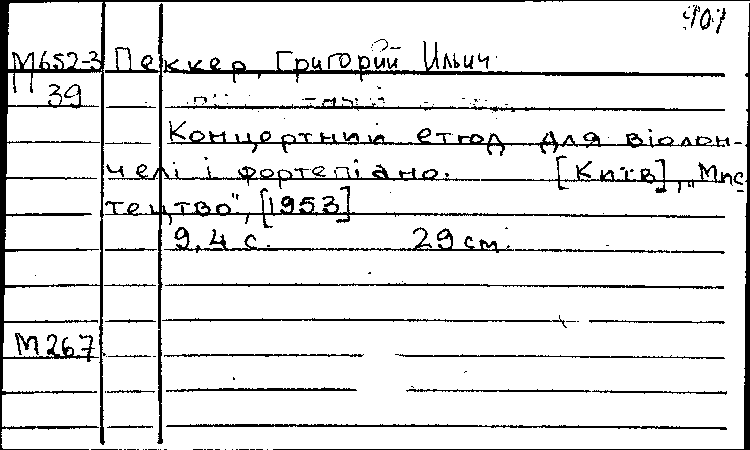 907
М652-3 Пеккер, Григорій Ильич
39
Концертний етюд для віолон-
челі і фортепіано. [Київ], „Мис
тецтво", [1953]
9,4 с. 29 см.
М267